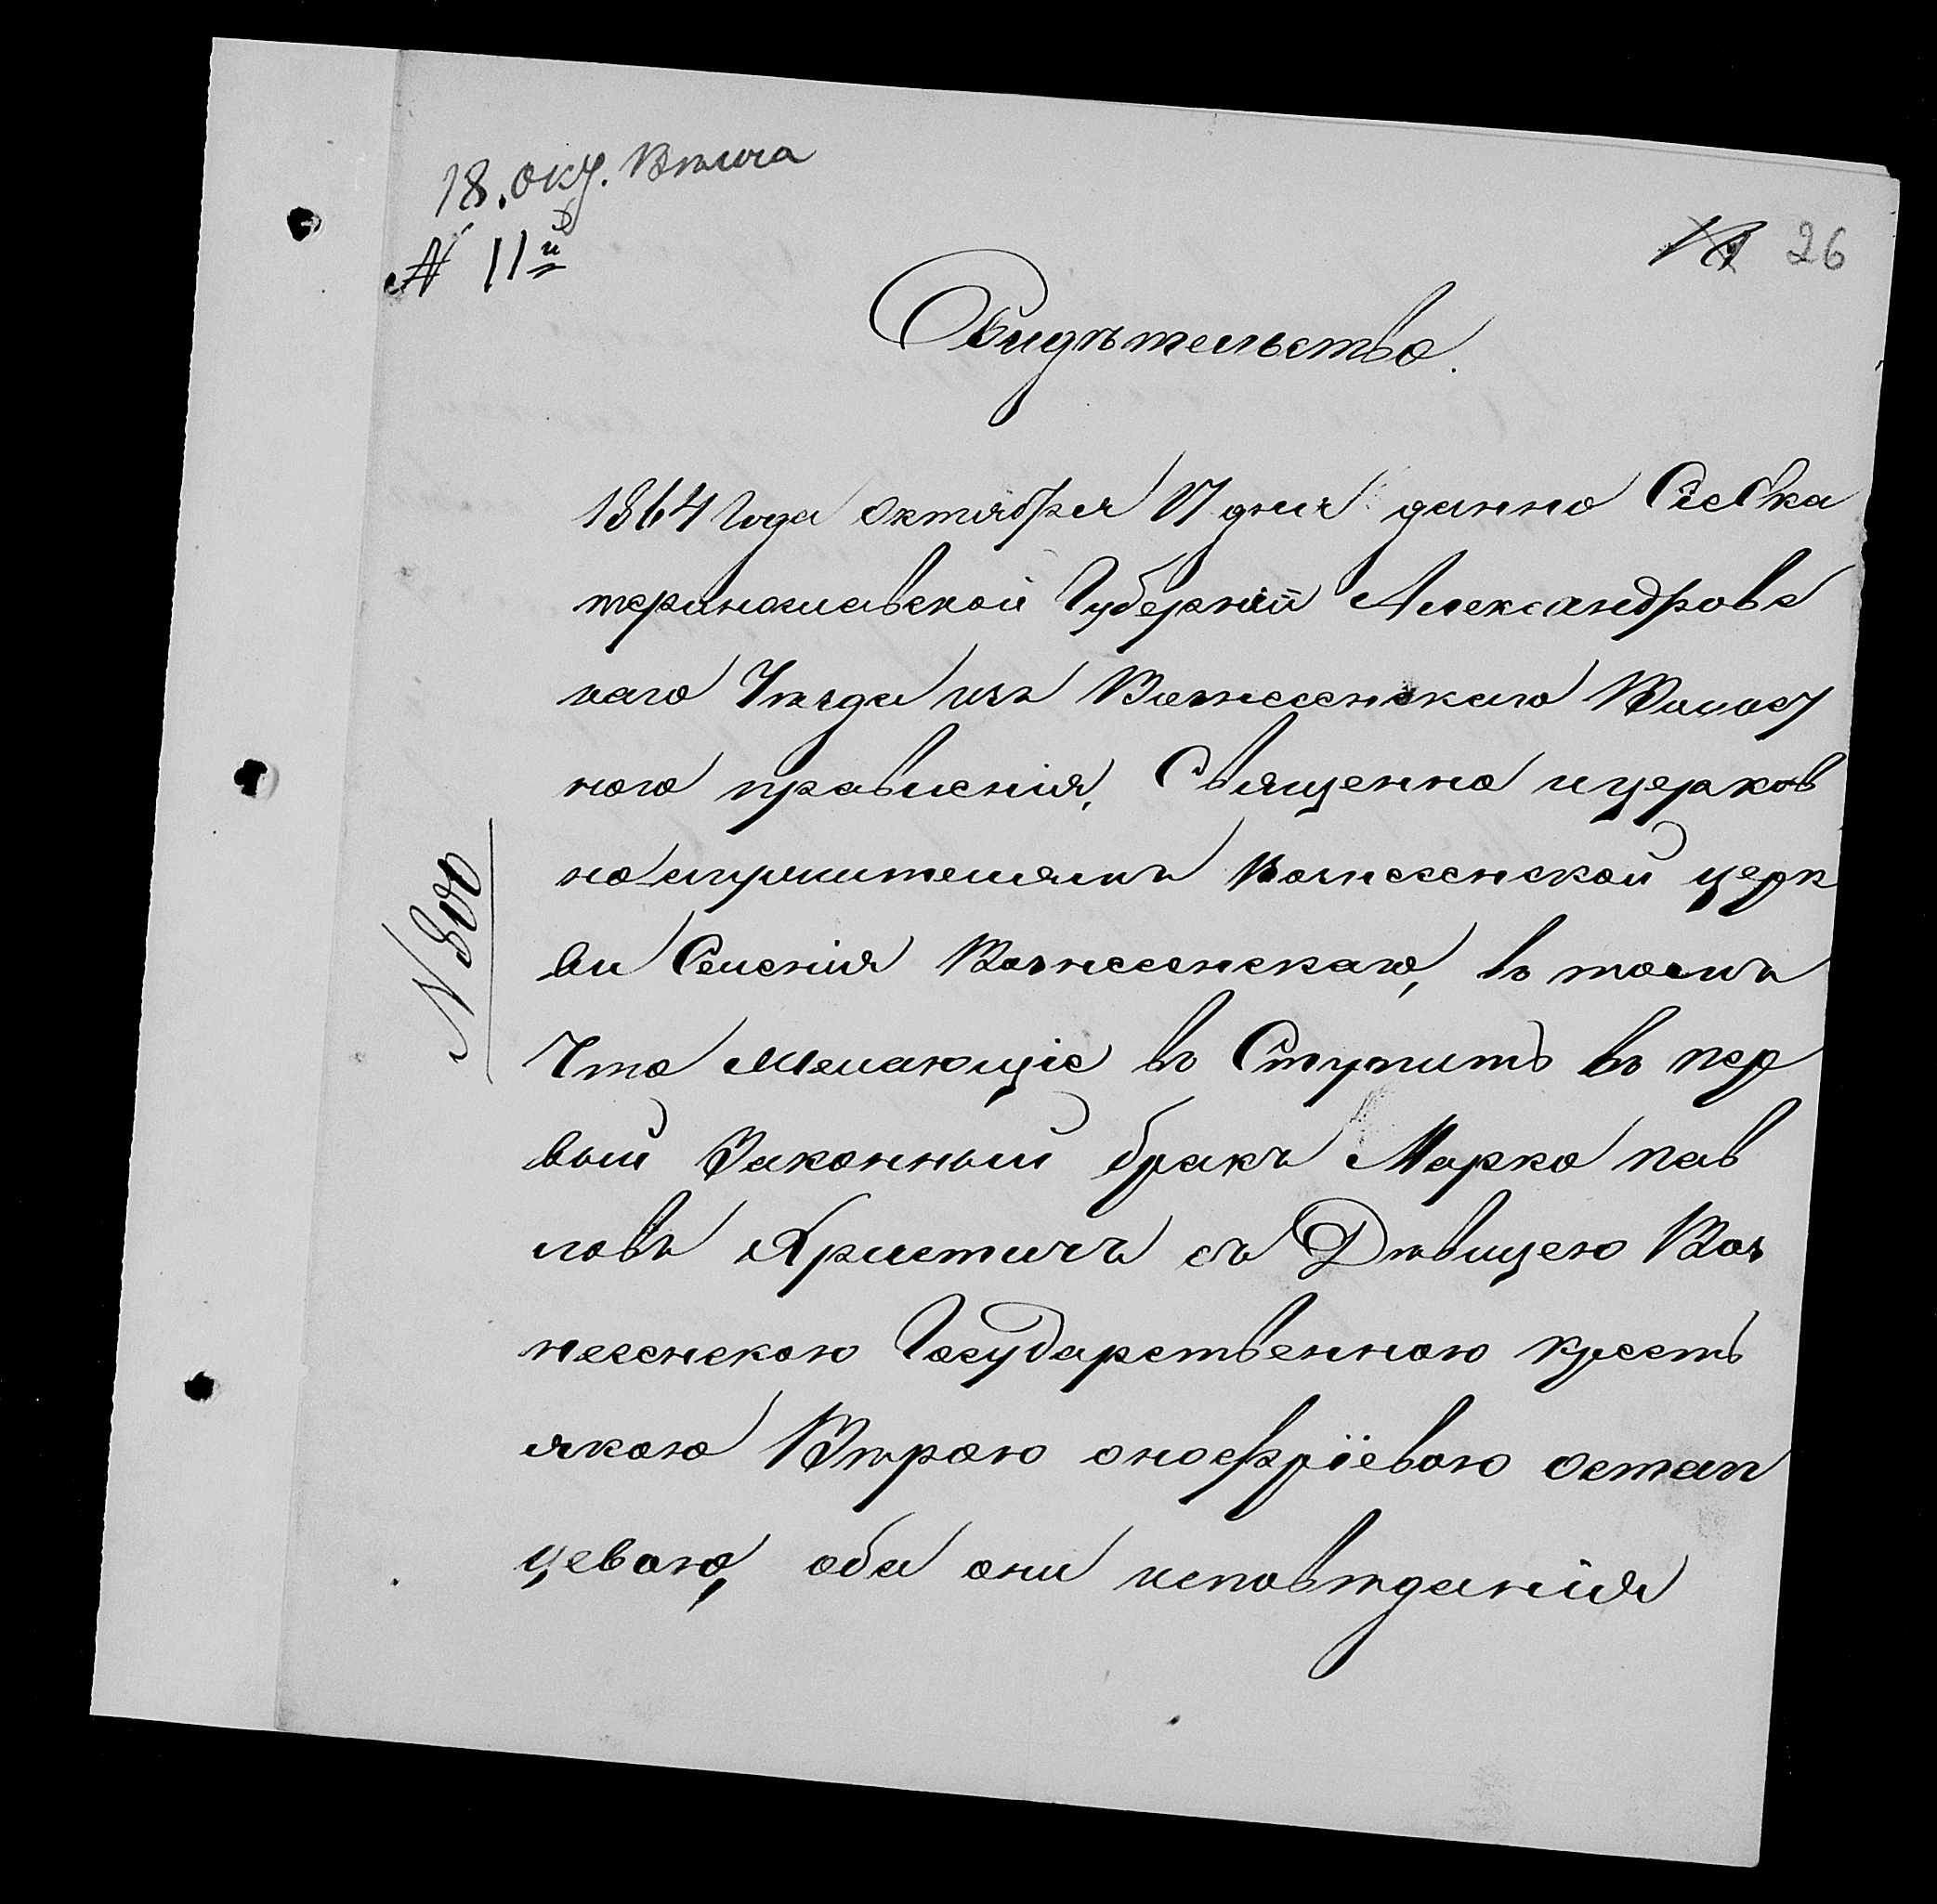 18. окт. Втича
№ 11й
26
Свидѣтельство.
1864 Года Октября 17 дня данно Сіе Ека
теринославской Губерніи Александровс
каго Уѣзда изъ Вознесенскаго Волост
ного правленія, Священно ицерков
но служителямъ Вознесенской церк
ви Селенія Вознесенскаго, въ томъ
Что Желающіе въ Ступитъ въ пер
вый Законный бракъ Марко пав
ловъ Христичъ съ Дѣвицею Воз
несенскою Государственною кресть
янкою Вѣрою оноефріевою остап
цевою, оба они исповѣданія
№ 800